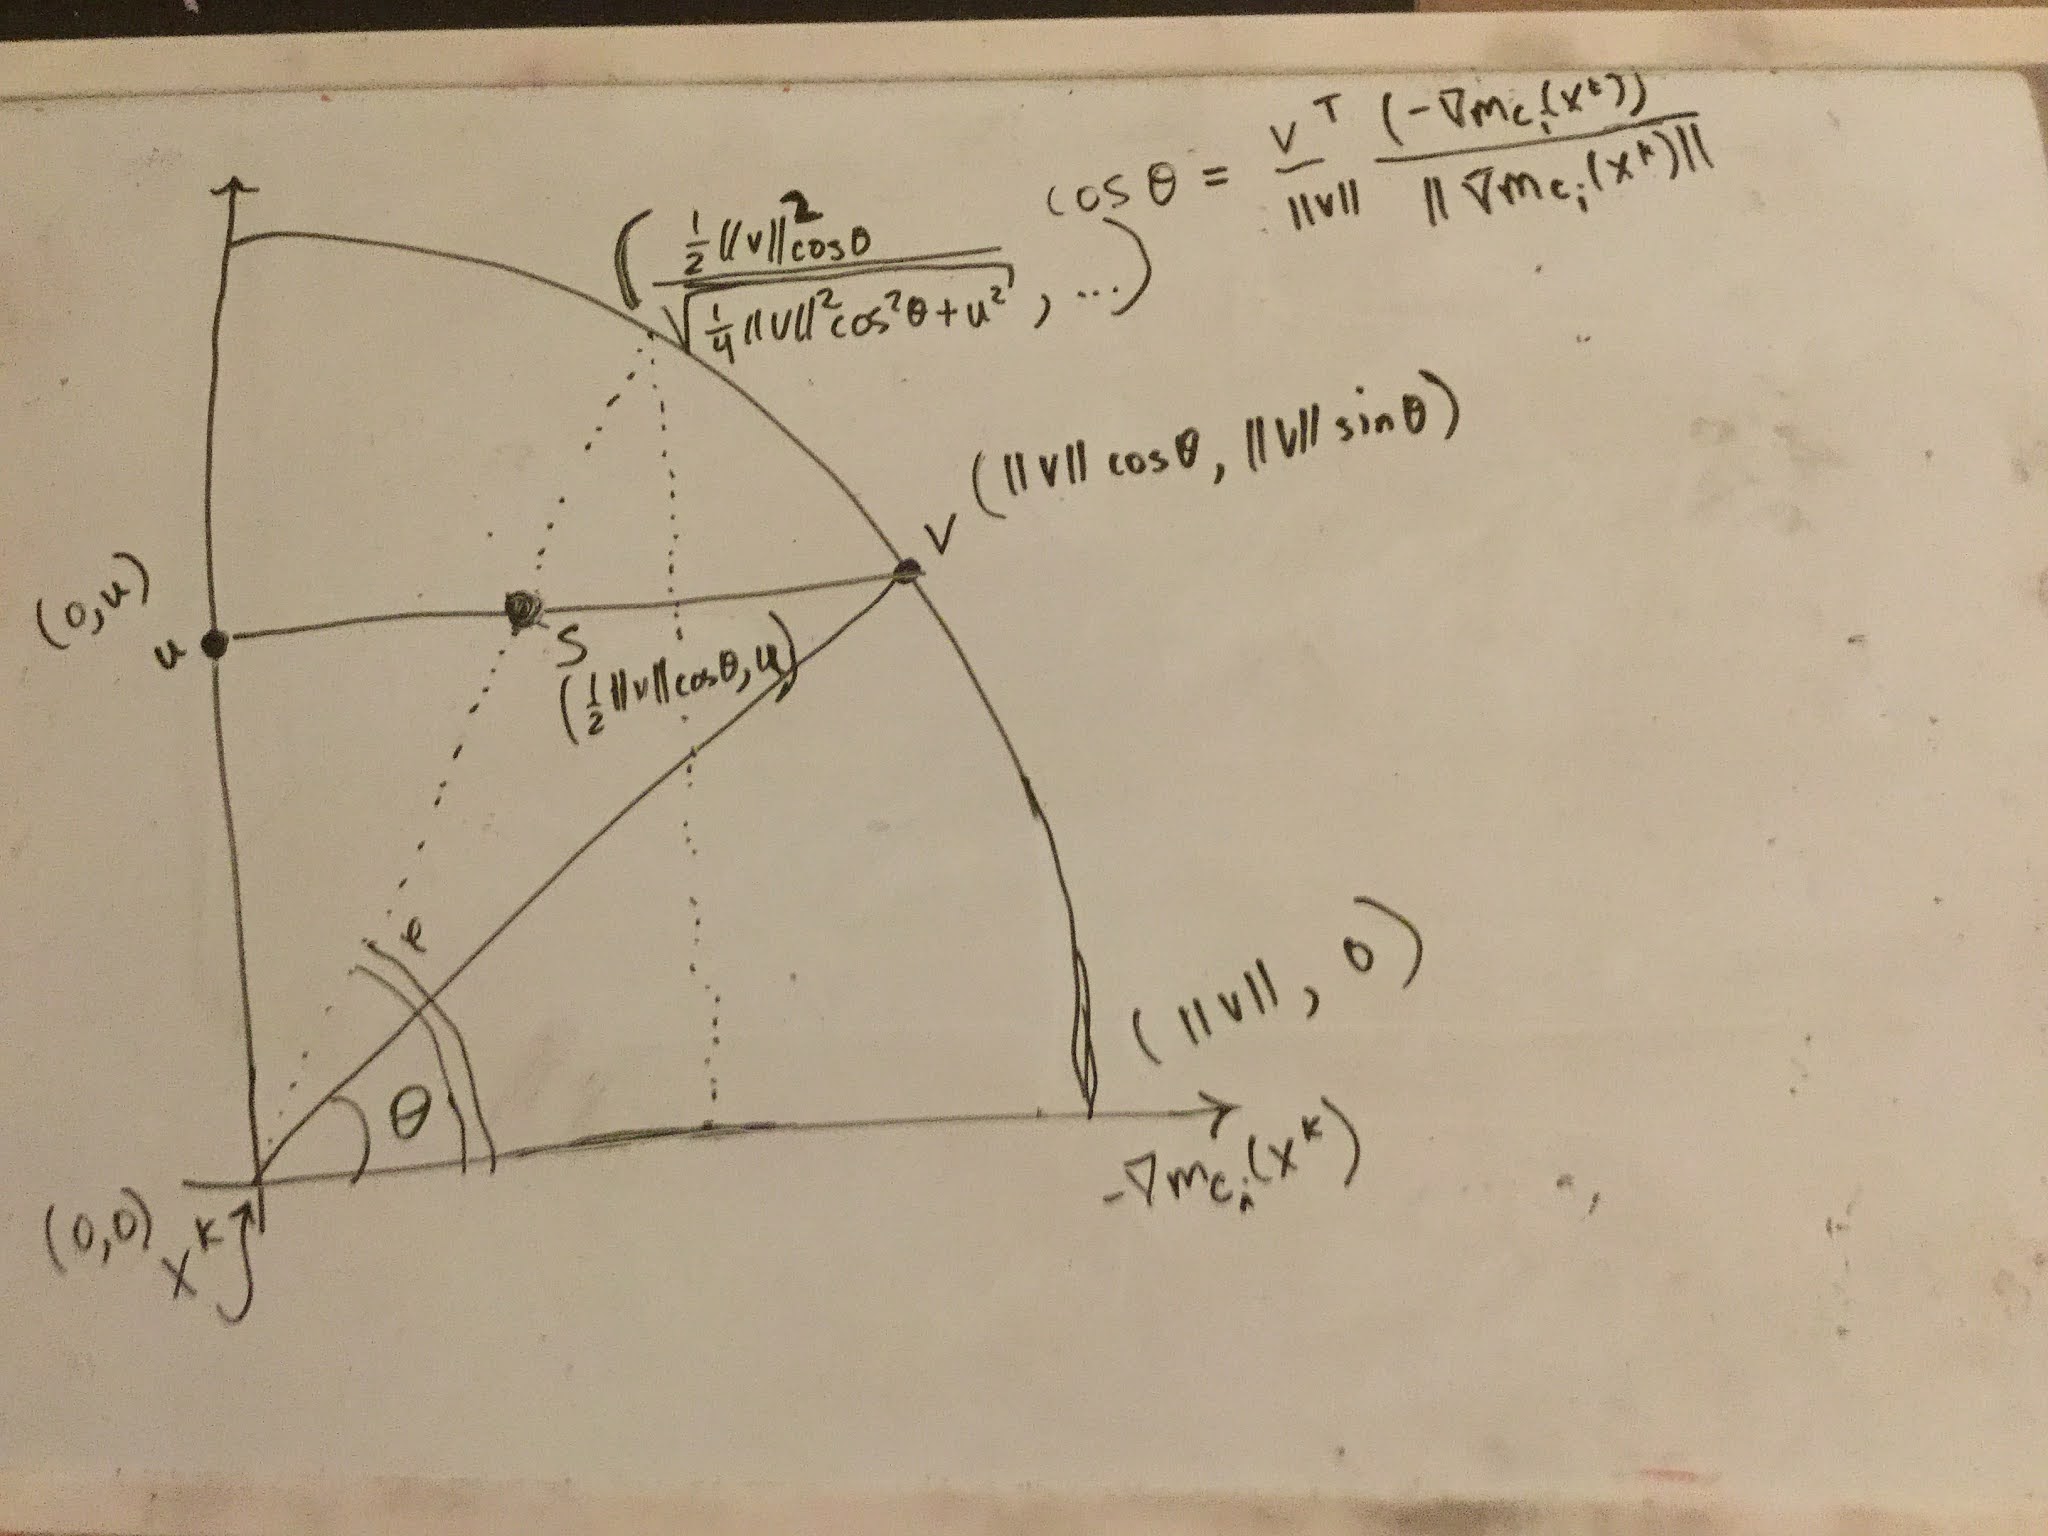 cos θ = v^T/||v|| (-∇m_{c_i}(x^k))/||∇m_{c_i}(x^k)||
(½||v||²cosθ / √(¼||v||²cos²θ + u²), ...)
(||v|| cosθ, ||v|| sinθ)
v
(0,u)
u
S
(½||v||cosθ, u)
(||v||, 0)
θ
-∇m_{c_i}(x^k)
(0,0)
x^k